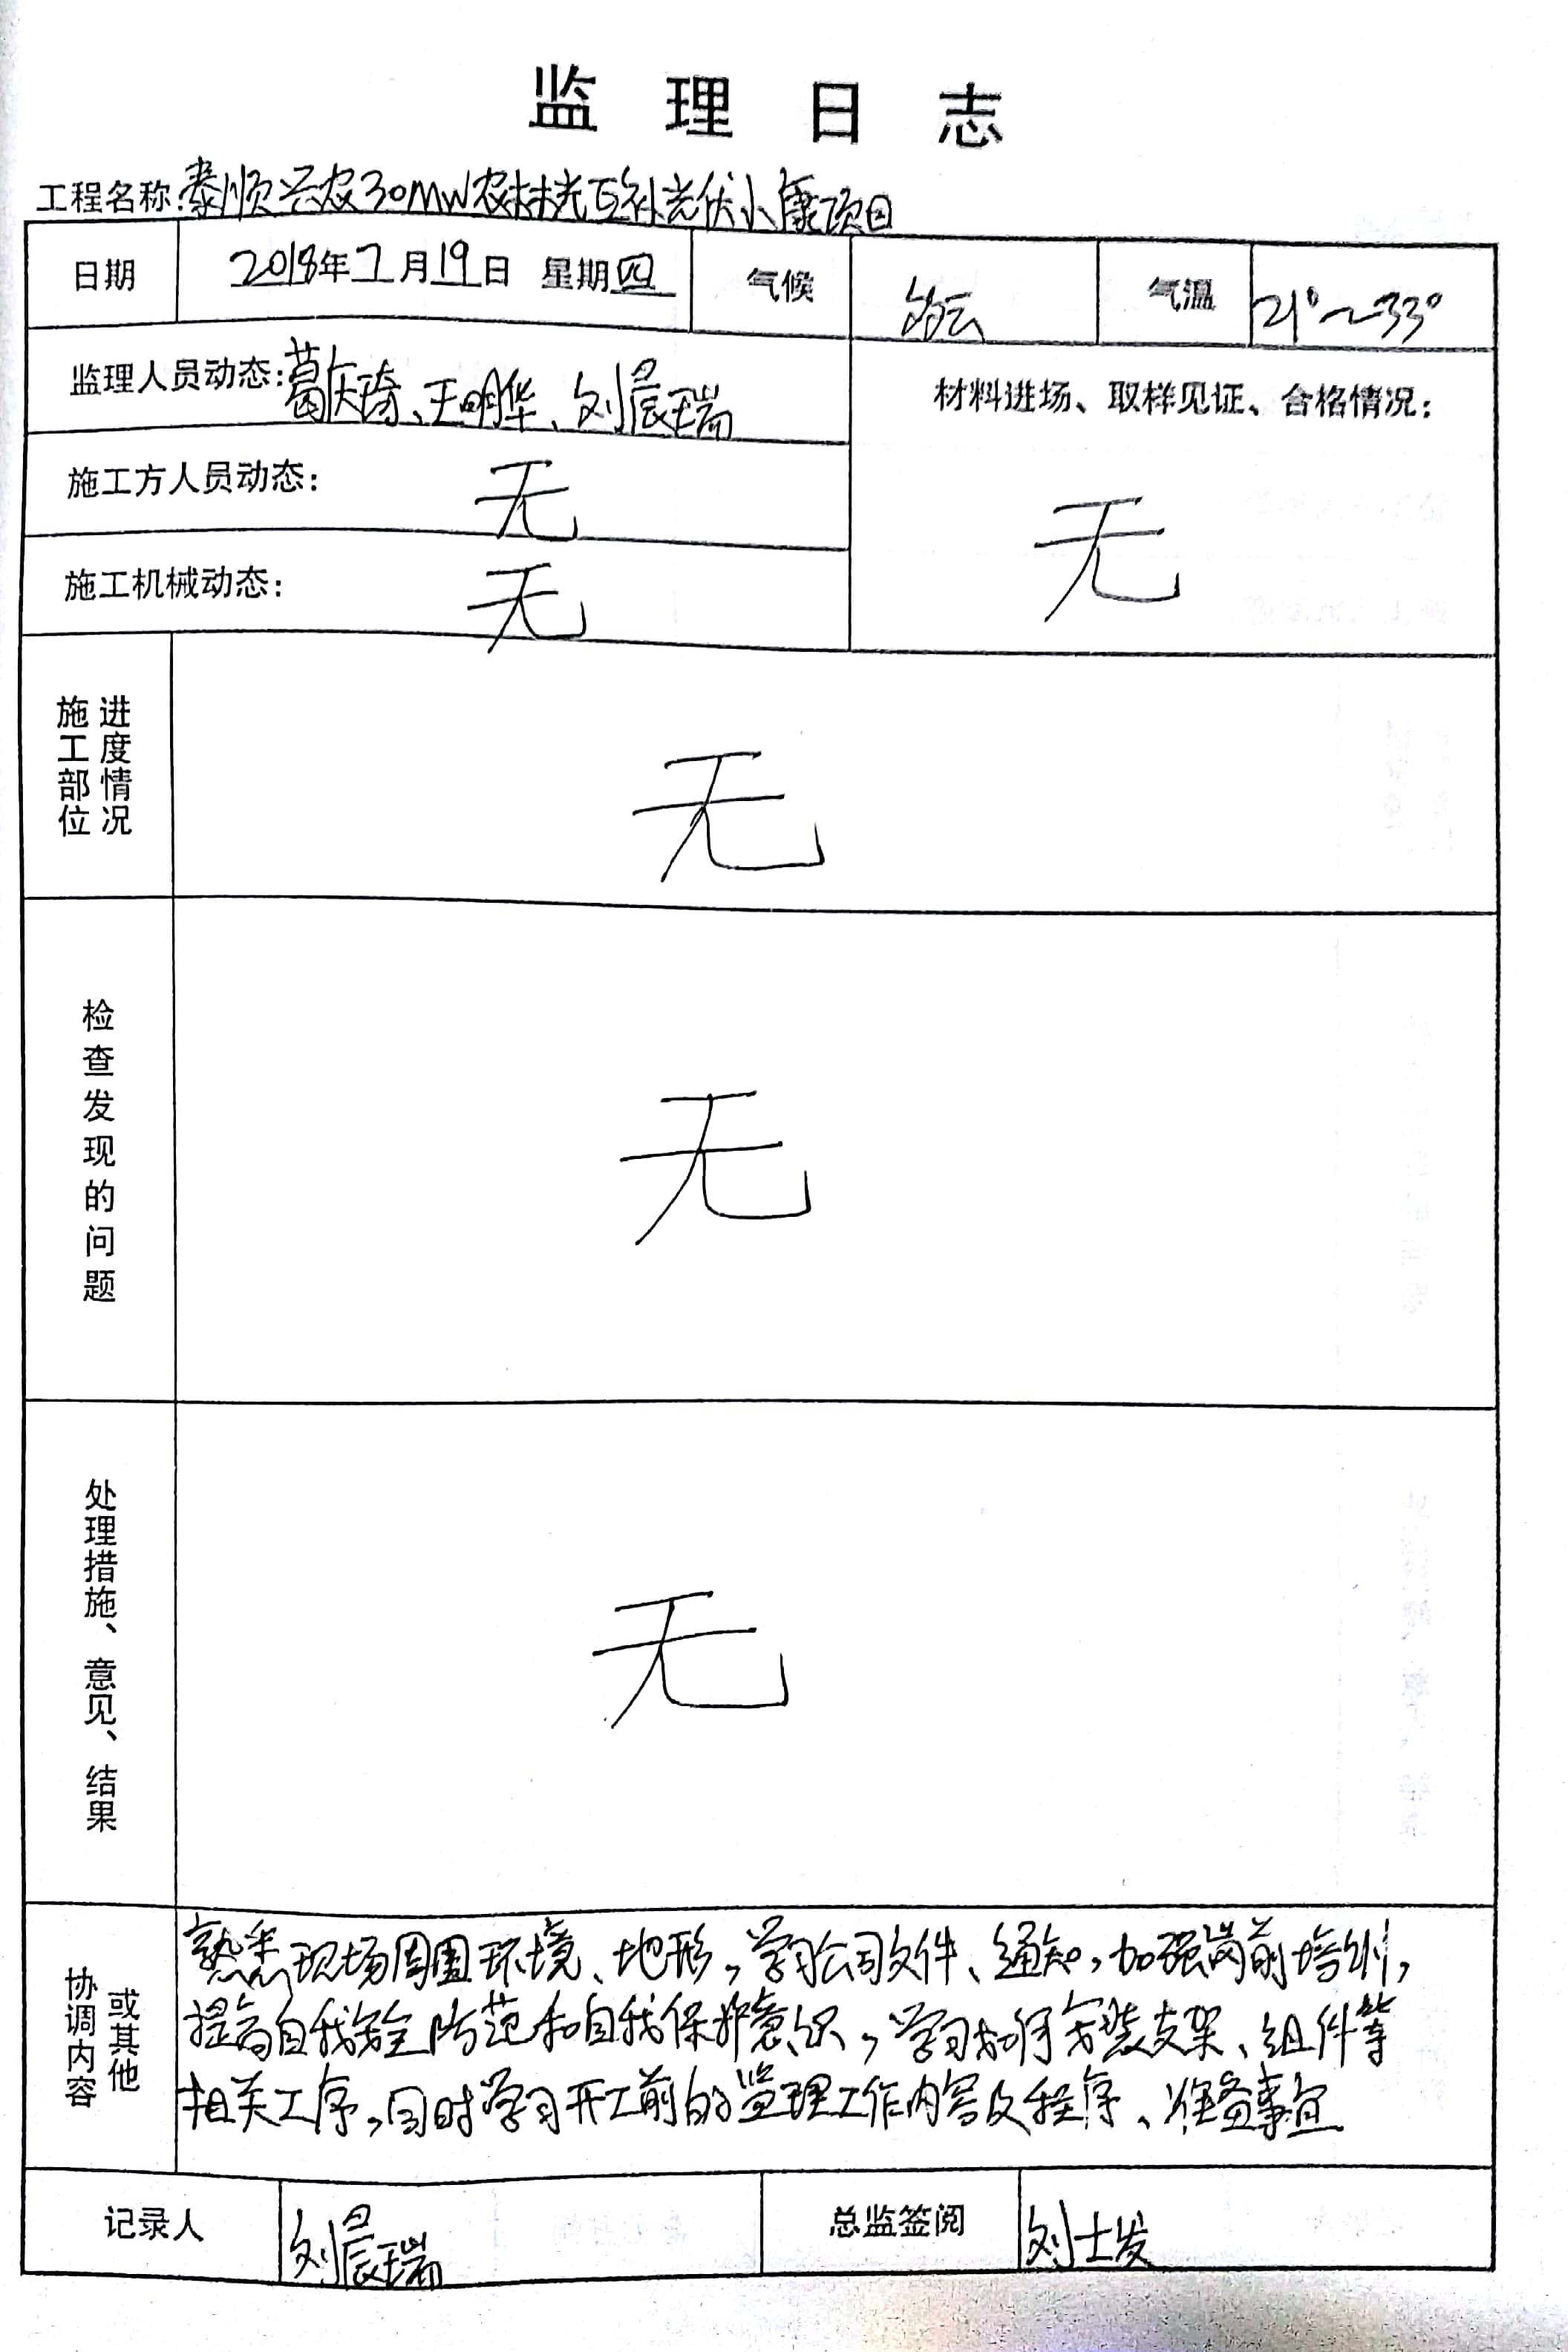 监理日志
工程名称:泰顺兴农30MW农林光互补光伏小康项目
日期 2018年7月19日 星期四 气候 多云 气温 21°~33°
监理人员动态:葛庆琦、王明华、刘晨瑞
材料进场、取样见证、合格情况:
施工方人员动态: 无
无
施工机械动态: 无
施工部位
进度情况
无
检查发现的问题
无
处理措施、意见、结果
无
协调内容
或其他
熟悉现场周围环境、地形,学习公司文件、通知,加强岗前培训,
提高自我安全防范和自我保护意识,学习如何安装支架、组件等
相关工序,同时学习开工前的监理工作内容及程序、准备事宜
记录人 刘晨瑞 总监签阅 刘士发